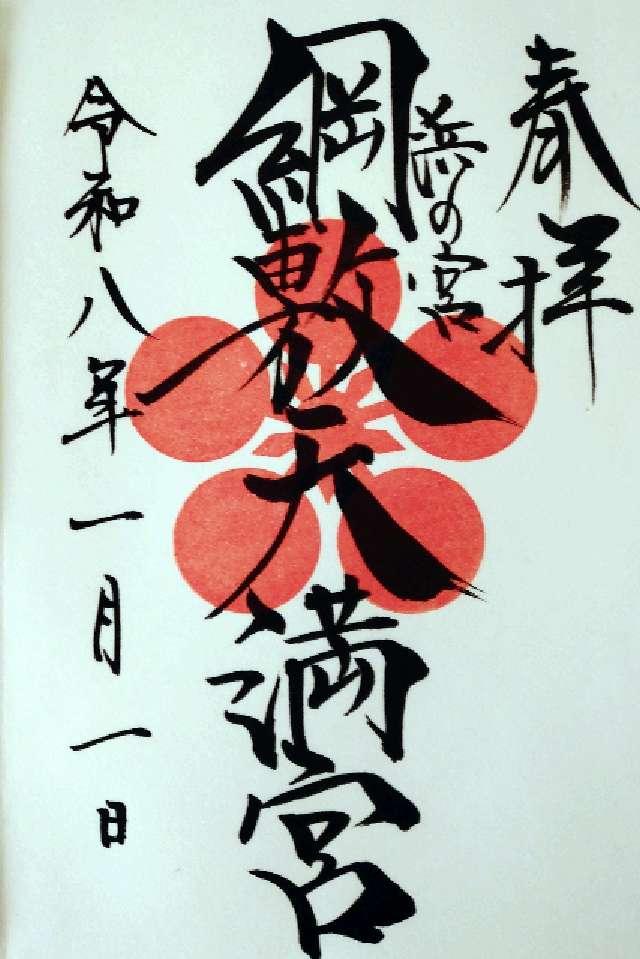 奉拝
浜の宮
綱敷天満宮
令和八年一月一日